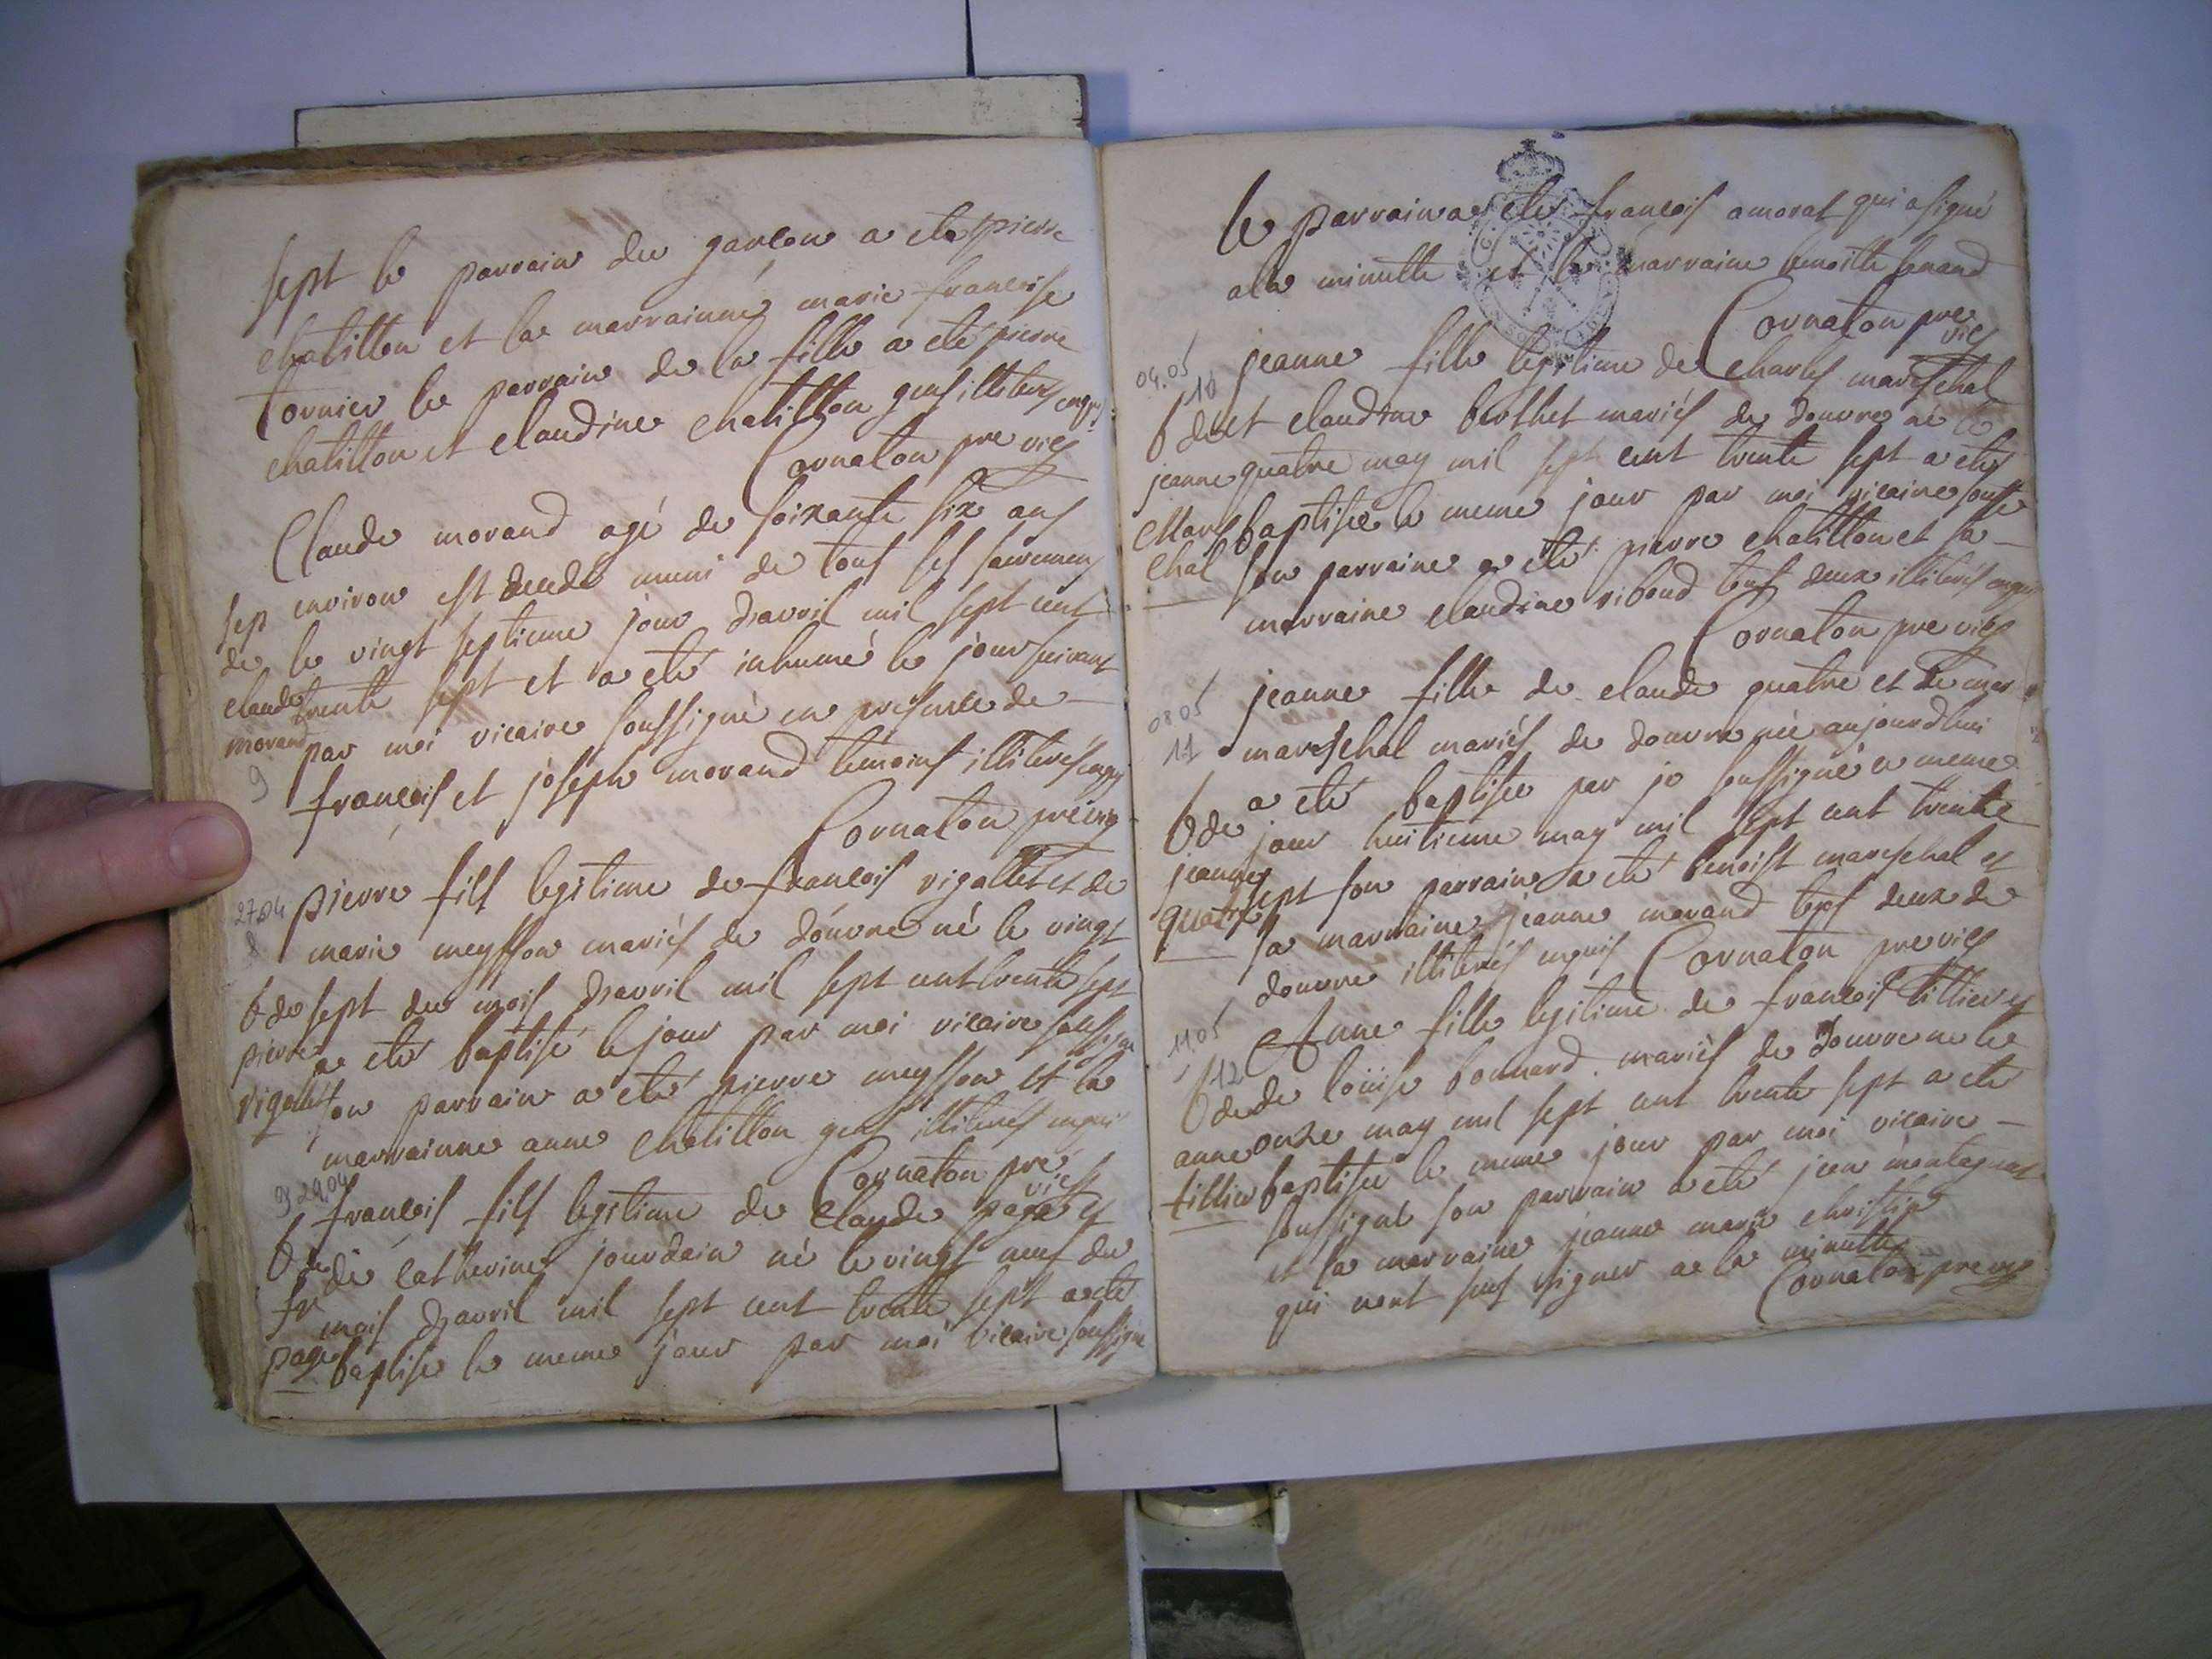 sept le parrain du garcon a ete pierre
chatillon et la marrainne marie francoise
Tornier le parrain de la fille a eté pierre
chatillon et claudine chatillon gens illiteres enquis
Cornaton pre vic
Claude morand agé de soixante six ans
sep environ est decedé muni de tous ses sacremens
de le vingt septieme jour d'avril mil sept cent
claude trente sept et a eté inhumé le jour suivant
morand par moi vicaire soussigné en presence de
9 francois et joseph morand temoins illiterés enquis
Cornaton pre vic
27.04 pierre fils legitime de francois vigallet et de
8 marie meysson mariés de douvre né le vingt
b de sept du mois d'avril mil sept cent trente sept
pierre a eté baptisé le jour par moi vicaire soussigné
vigallet son parrain a eté pierre meysson et la
marrainne anne chatillon gens illiterés enquis
Cornaton pre vic
9 29.04 francois fils legitime de Claude page et
b de de catherine jourdain né le vingt neuf du
fr mois d'avril mil sept cent trente sept a eté
page baptisé le meme jour par moi vicaire soussigné
le parrain a eté francois amorat qui a signé
a la minutte et la marraine benoite benand
Cornaton pre vic
04.05 jeanne fille legitime de Charles mareschal
10
b de et claudine berthet mariés de douvre né le
jeanne quatre may mil sept cent trente sept a eté
Mares baptisée le meme jour par moi vicaire souss
chal son parraine a eté pierre chatillon et sa
marraine claudine riboud tous deux illiterés enquis
Cornaton pre vic
08 05 jeanne fille de claude quatre et de
11 mareschal mariés de douvre née aujourdhui
b de a eté baptisée par je soussigné ce meme
jeanne jour huitieme may mil sept cent trente
quatre sept son parraine a eté benoist mareschal et
sa marraine jeanne morand tous deux de
douvre illiterés enquis Cornaton pre vic
11.05 Anne fille legitime de francois tillier et
12
b de de loüise bonnard mariés de douvre ne le
anne onze may mil sept cent trente sept a eté
tillier baptisée le meme jour par moi vicaire
soussigné son parrain a eté jean montagnat
et la marraine jeanne marie christin
qui n'ont sus signer a la minutte
Cornaton pre vic